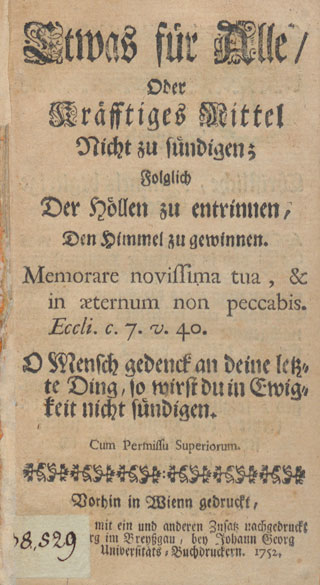 Etwas für Alle/
Oder
Kräfftiges Mittel
Nicht zu sündigen;
Folglich
Der Höllen zu entrinnen,
Den Himmel zu gewinnen.
Memorare novissima tua, &
in æternum non peccabis.
Eccli. c. 7. v. 40.
O Mensch gedenck an deine letz-
te Ding, so wirst du in Ewig-
keit nicht sündigen.
Cum Permissu Superiorum.
Vorhin in Wienn gedruckt,
mit ein und anderen Zusatz nachgedruckt
im Breyßgau, bey Johann Georg
Universitäts-Buchdruckern. 1752.
8,529